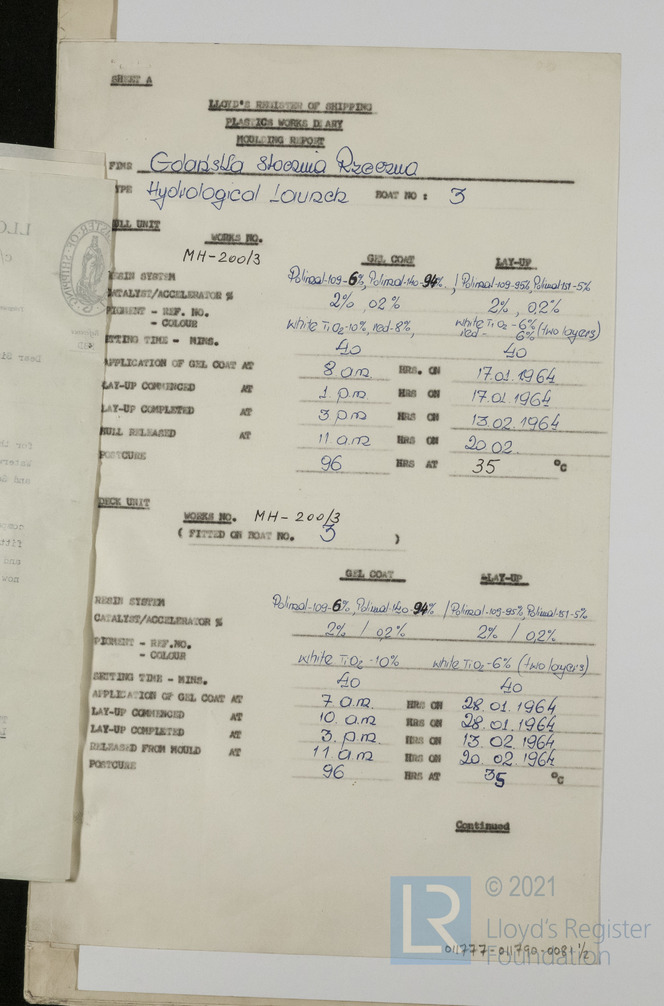 SHEET A
LLOYD'S REGISTER OF SHIPPING
PLASTICS WORKS DIARY
MOULDING REPORT
FIRM Gdańska Stocznia Rzeczna
TYPE Hydrological Launch BOAT NO: 3
HULL UNIT
WORKS NO.
MH-200/3
GEL COAT LAY-UP
RESIN SYSTEM Polimal-109-6%, Polimal-140-94%, / Polimal-109-95%, Polimal-151-5%
CATALYST/ACCELERATOR % 2%, 02% 2%, 0,2%
PIGMENT - REF. NO.
- COLOUR white TiO2-10%, red-8%, white TiO2-6% (two layers)
red- 6%
SETTING TIME - MINS. 40 40
APPLICATION OF GEL COAT AT 8 a.m. HRS. ON 17.01.1964
LAY-UP COMMENCED AT 1. p.m. HRS ON 17.01.1964
LAY-UP COMPLETED AT 3 p.m HRS ON 13.02.1964
HULL RELEASED AT 11 a.m HRS ON 20.02.
POSTCURE 96 HRS AT 35 °C
DECK UNIT
WORKS NO. MH-200/3
( FITTED ON BOAT NO. 3 )
GEL COAT LAY-UP
RESIN SYSTEM Polimal-109-6%, Polimal-140-94% / Polimal-109-95%, Polimal-151-5%
CATALYST/ACCELERATOR % 2% / 0,2% 2% / 0,2%
PIGMENT - REF.NO.
- COLOUR white TiO2-10% white TiO2-6% (two layers)
SETTING TIME - MINS. 40 40
APPLICATION OF GEL COAT AT 7 a.m. HRS ON 28.01.1964
LAY-UP COMMENCED AT 10. a.m HRS ON 28.01.1964
LAY-UP COMPLETED AT 3. p.m. HRS ON 13.02.1964
RELEASED FROM MOULD AT 11 a.m HRS ON 20.02.1964
POSTCURE 96 HRS AT 35 °C
Continued
LR © 2021
Lloyd's Register
Foundation
011777-011790-0081 1/2